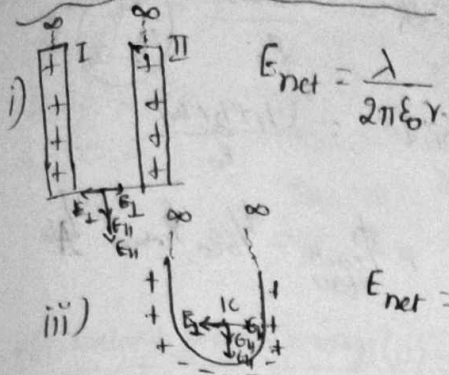 ∞ ∞
i) I II
+ + + +
+ + + +
E_net = λ / 2πε₀r
E⊥ E⊥
E∥
E∥
∞ ∞
iii)
+ + +
+ + +
E_net =
E⊥
E∥